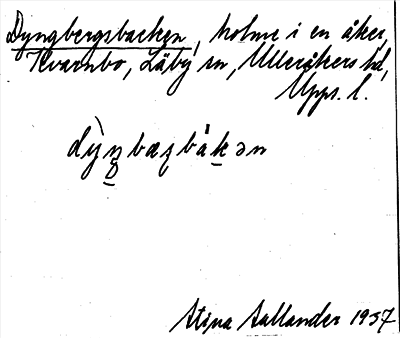 Dyngbergsbacken, holme i en åker,
Kvarnbo, Läby sn, Ulleråkers hd,
Upps. l.
dỳŋbæȷbåkən
Stina Sallander 1937